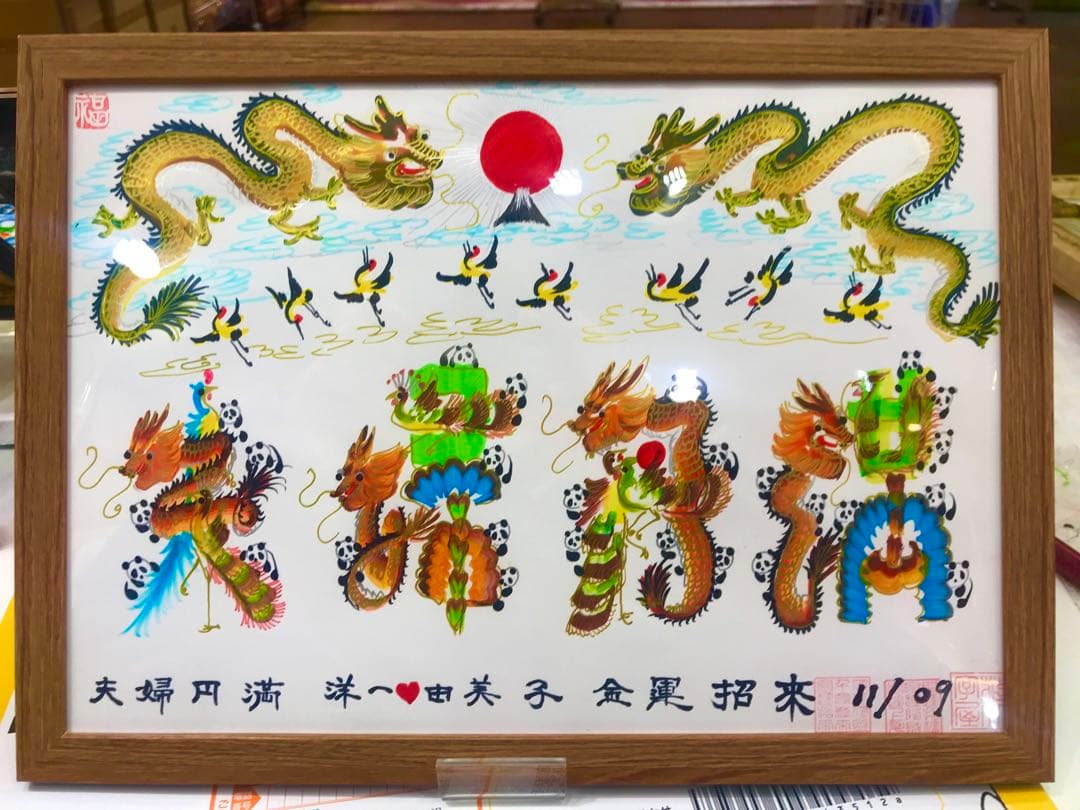 福
夫婦円満
夫婦円満 洋一♥由美子 金運招来 11/09